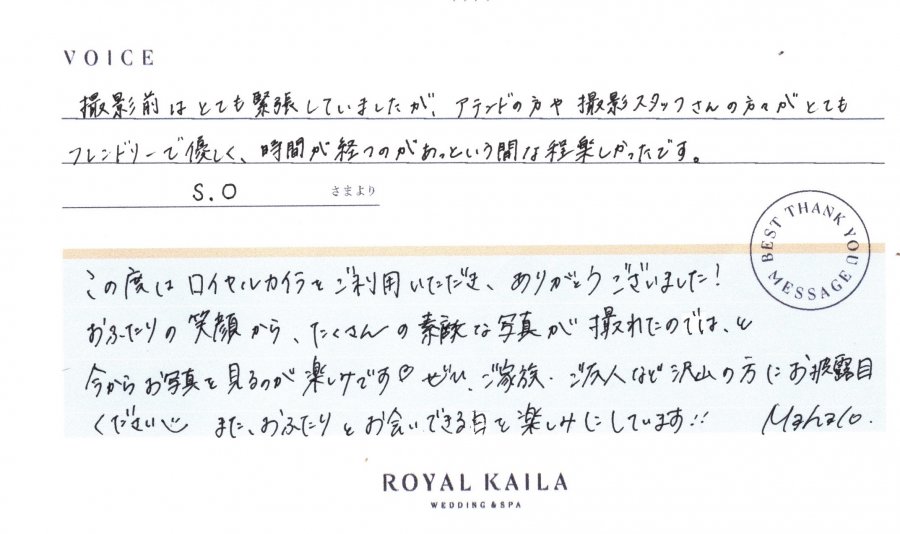 VOICE
撮影前はとても緊張していましたが、アテンドの方や撮影スタッフさんの方々がとても
フレンドリーで優しく、時間が経つのがあっという間な程楽しかったです。
S.O さまより
BEST THANK YOU
MESSAGE
この度はロイヤルカイラをご利用いただき、ありがとうございました！
おふたりの笑顔から、たくさんの素敵な写真が撮れたのでは、と
今からお写真を見るのが楽しみです♡ ぜひ、ご家族・ご友人など沢山の方にお披露目
ください また、おふたりとお会いできる日を楽しみにしています!! Mahalo.
ROYAL KAILA
WEDDING & SPA